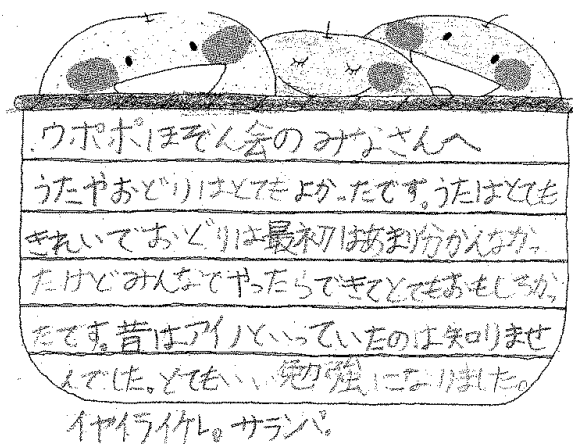 ウポポほぞん会のみなさんへ
うたやおどりはとてもよかったです。うたはとても
きれいでおどりは最初はあまり分かんなかっ
たけどみんなでやったらできてとてもおもしろかっ
たです。昔はアイノといっていたのは知りませ
んでした。とてもいい勉強になりました。
イヤイライケレ。サランパ。